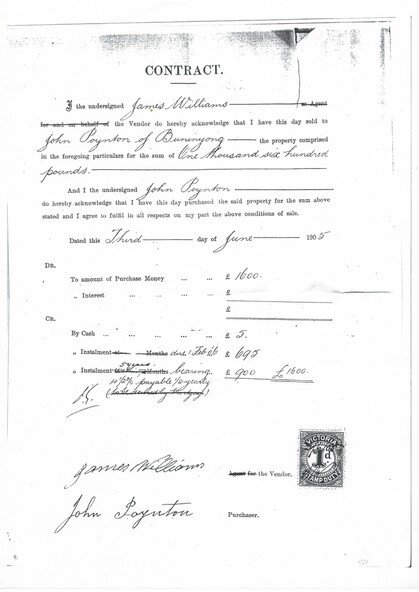 CONTRACT.
I the undersigned James Williams as Agent
for and on behalf of the Vendor do hereby acknowledge that I have this day sold to
John Poynton of Buninyong the property comprised
in the foregoing particulars for the sum of One thousand six hundred
pounds.
And I the undersigned John Poynton
do hereby acknowledge that I have this day purchased the said property for the sum above
stated and I agree to fulfil in all respects on my part the above conditions of sale.
Dated this Third day of June 1905
DR.
To amount of Purchase Money ... ... £ 1600.
„ Interest ... ... ... £
£
CR.
By Cash ... ... ... ... £ 5.
„ Instalment at Months due 1 Feb £ 695
5 years
„ Instalment Months bearing £ 900 £1600.
payable ½ yearly
James Williams
Agent for the Vendor.
John Poynton Purchaser.
VICTORIA
1d
STAMP DUTY